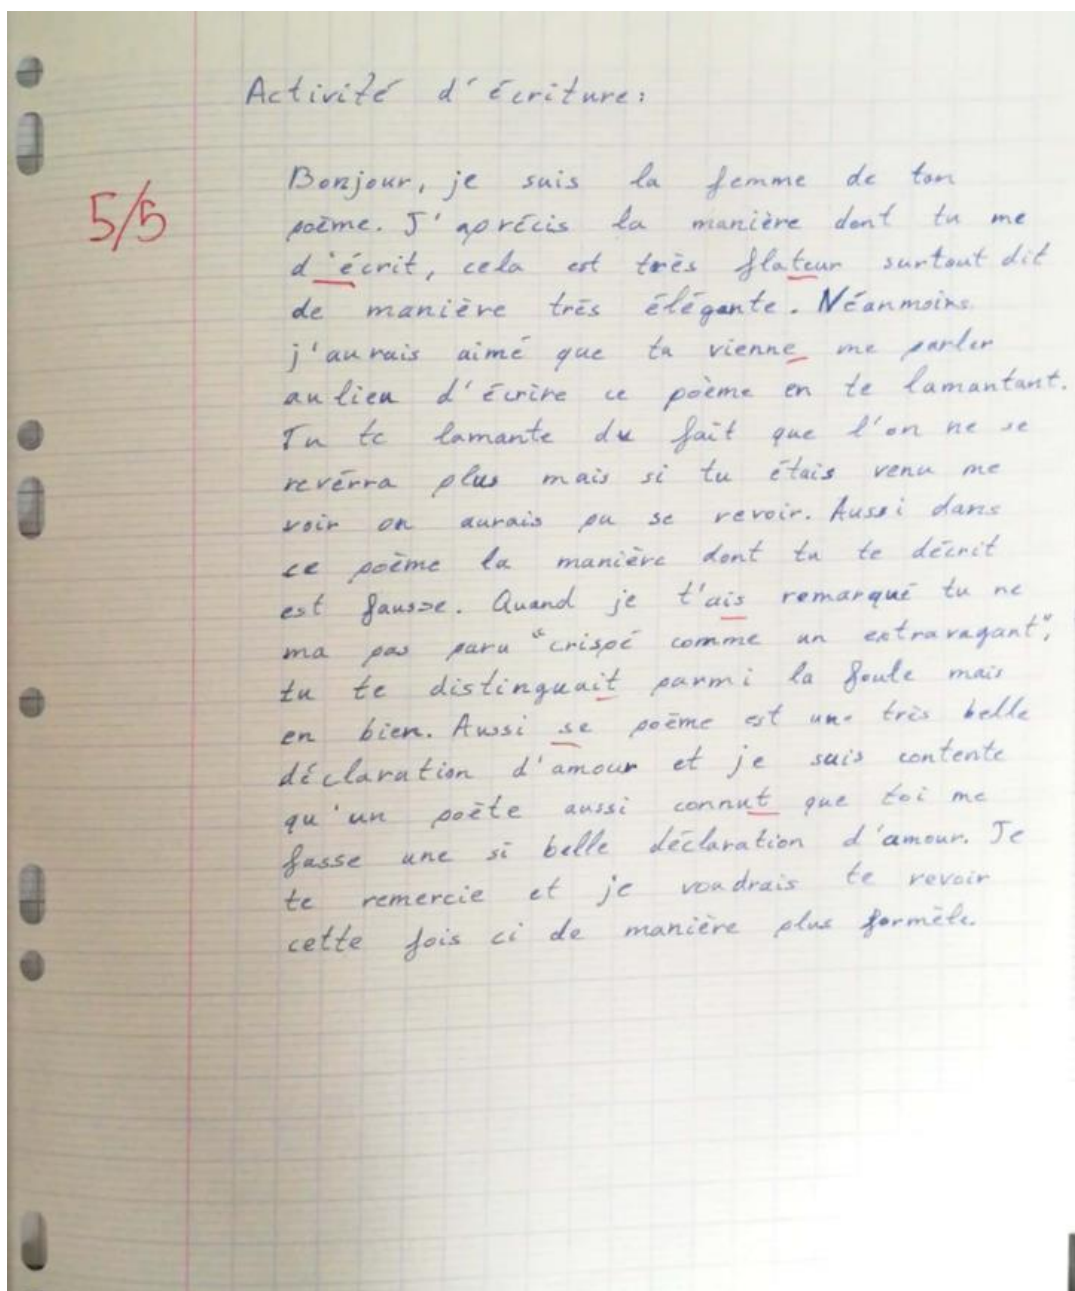 Activité d'écriture:
5/5
Bonjour, je suis la femme de ton
poème. J'aprécis la manière dont tu me
d'écrit, cela est très flateur surtout dit
de manière très élégante. Néanmoins
j'aurais aimé que tu vienne me parler
au lieu d'écrire ce poème en te lamantant.
Tu te lamante du fait que l'on ne se
revérra plus mais si tu étais venu me
voir on aurais pu se revoir. Aussi dans
ce poème la manière dont tu te décrit
est fausse. Quand je t'ais remarqué tu ne
ma pas paru "crispé comme un extravagant",
tu te distinguait parmi la foule mais
en bien. Aussi se poème est une très belle
déclaration d'amour et je suis contente
qu'un poète aussi connut que toi me
fasse une si belle déclaration d'amour. Je
te remercie et je voudrais te revoir
cette fois ci de manière plus formèle.